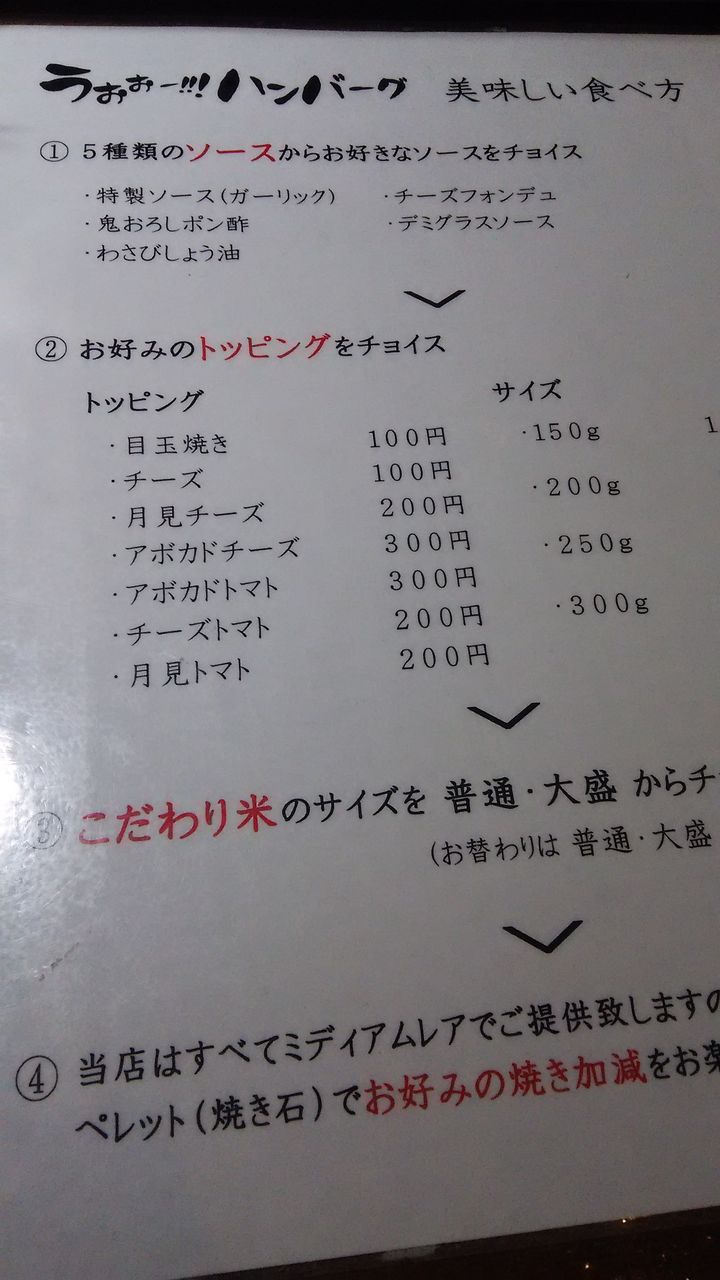 うぉぉー!!! ハンバーグ 美味しい食べ方
① 5種類のソースからお好きなソースをチョイス
・特製ソース(ガーリック) ・チーズフォンデュ
・鬼おろしポン酢 ・デミグラスソース
・わさびしょう油
② お好みのトッピングをチョイス
トッピング サイズ
・目玉焼き 100円 ・150g 1
・チーズ 100円 ・200g
・月見チーズ 200円
・アボカドチーズ 300円 ・250g
・アボカドトマト 300円 ・300g
・チーズトマト 200円
・月見トマト 200円
③ こだわり米のサイズを 普通・大盛 からチ
(お替わりは 普通・大盛
④ 当店はすべてミディアムレアでご提供致しますの
ペレット(焼き石)でお好みの焼き加減をお楽